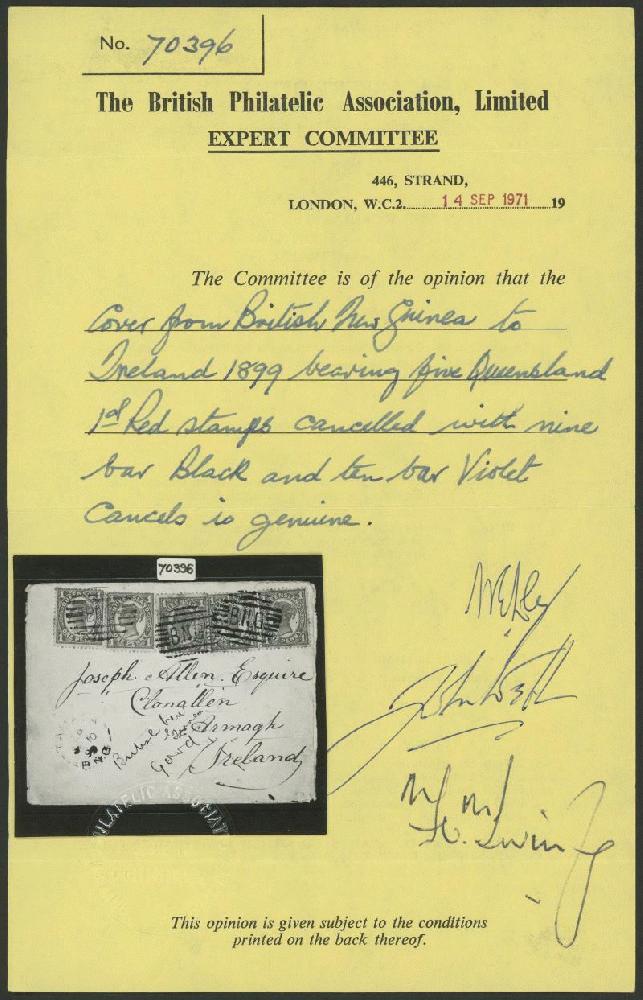 No. 70396
The British Philatelic Association, Limited
EXPERT COMMITTEE
446, STRAND,
LONDON, W.C.2. 14 SEP 1971 19
The Committee is of the opinion that the
Cover from British New Guinea to
Ireland 1899 bearing five Queensland
1d Red stamps cancelled with nine
bar Black and ten bar Violet
Cancels is genuine.
70396
B.N.G
B.N.G
Joseph Allen. Esquire
Clonallen
Armagh
Ireland
British New
Guinea
B.N.G
PHILATELIC ASSOCIAT
This opinion is given subject to the conditions
printed on the back thereof.